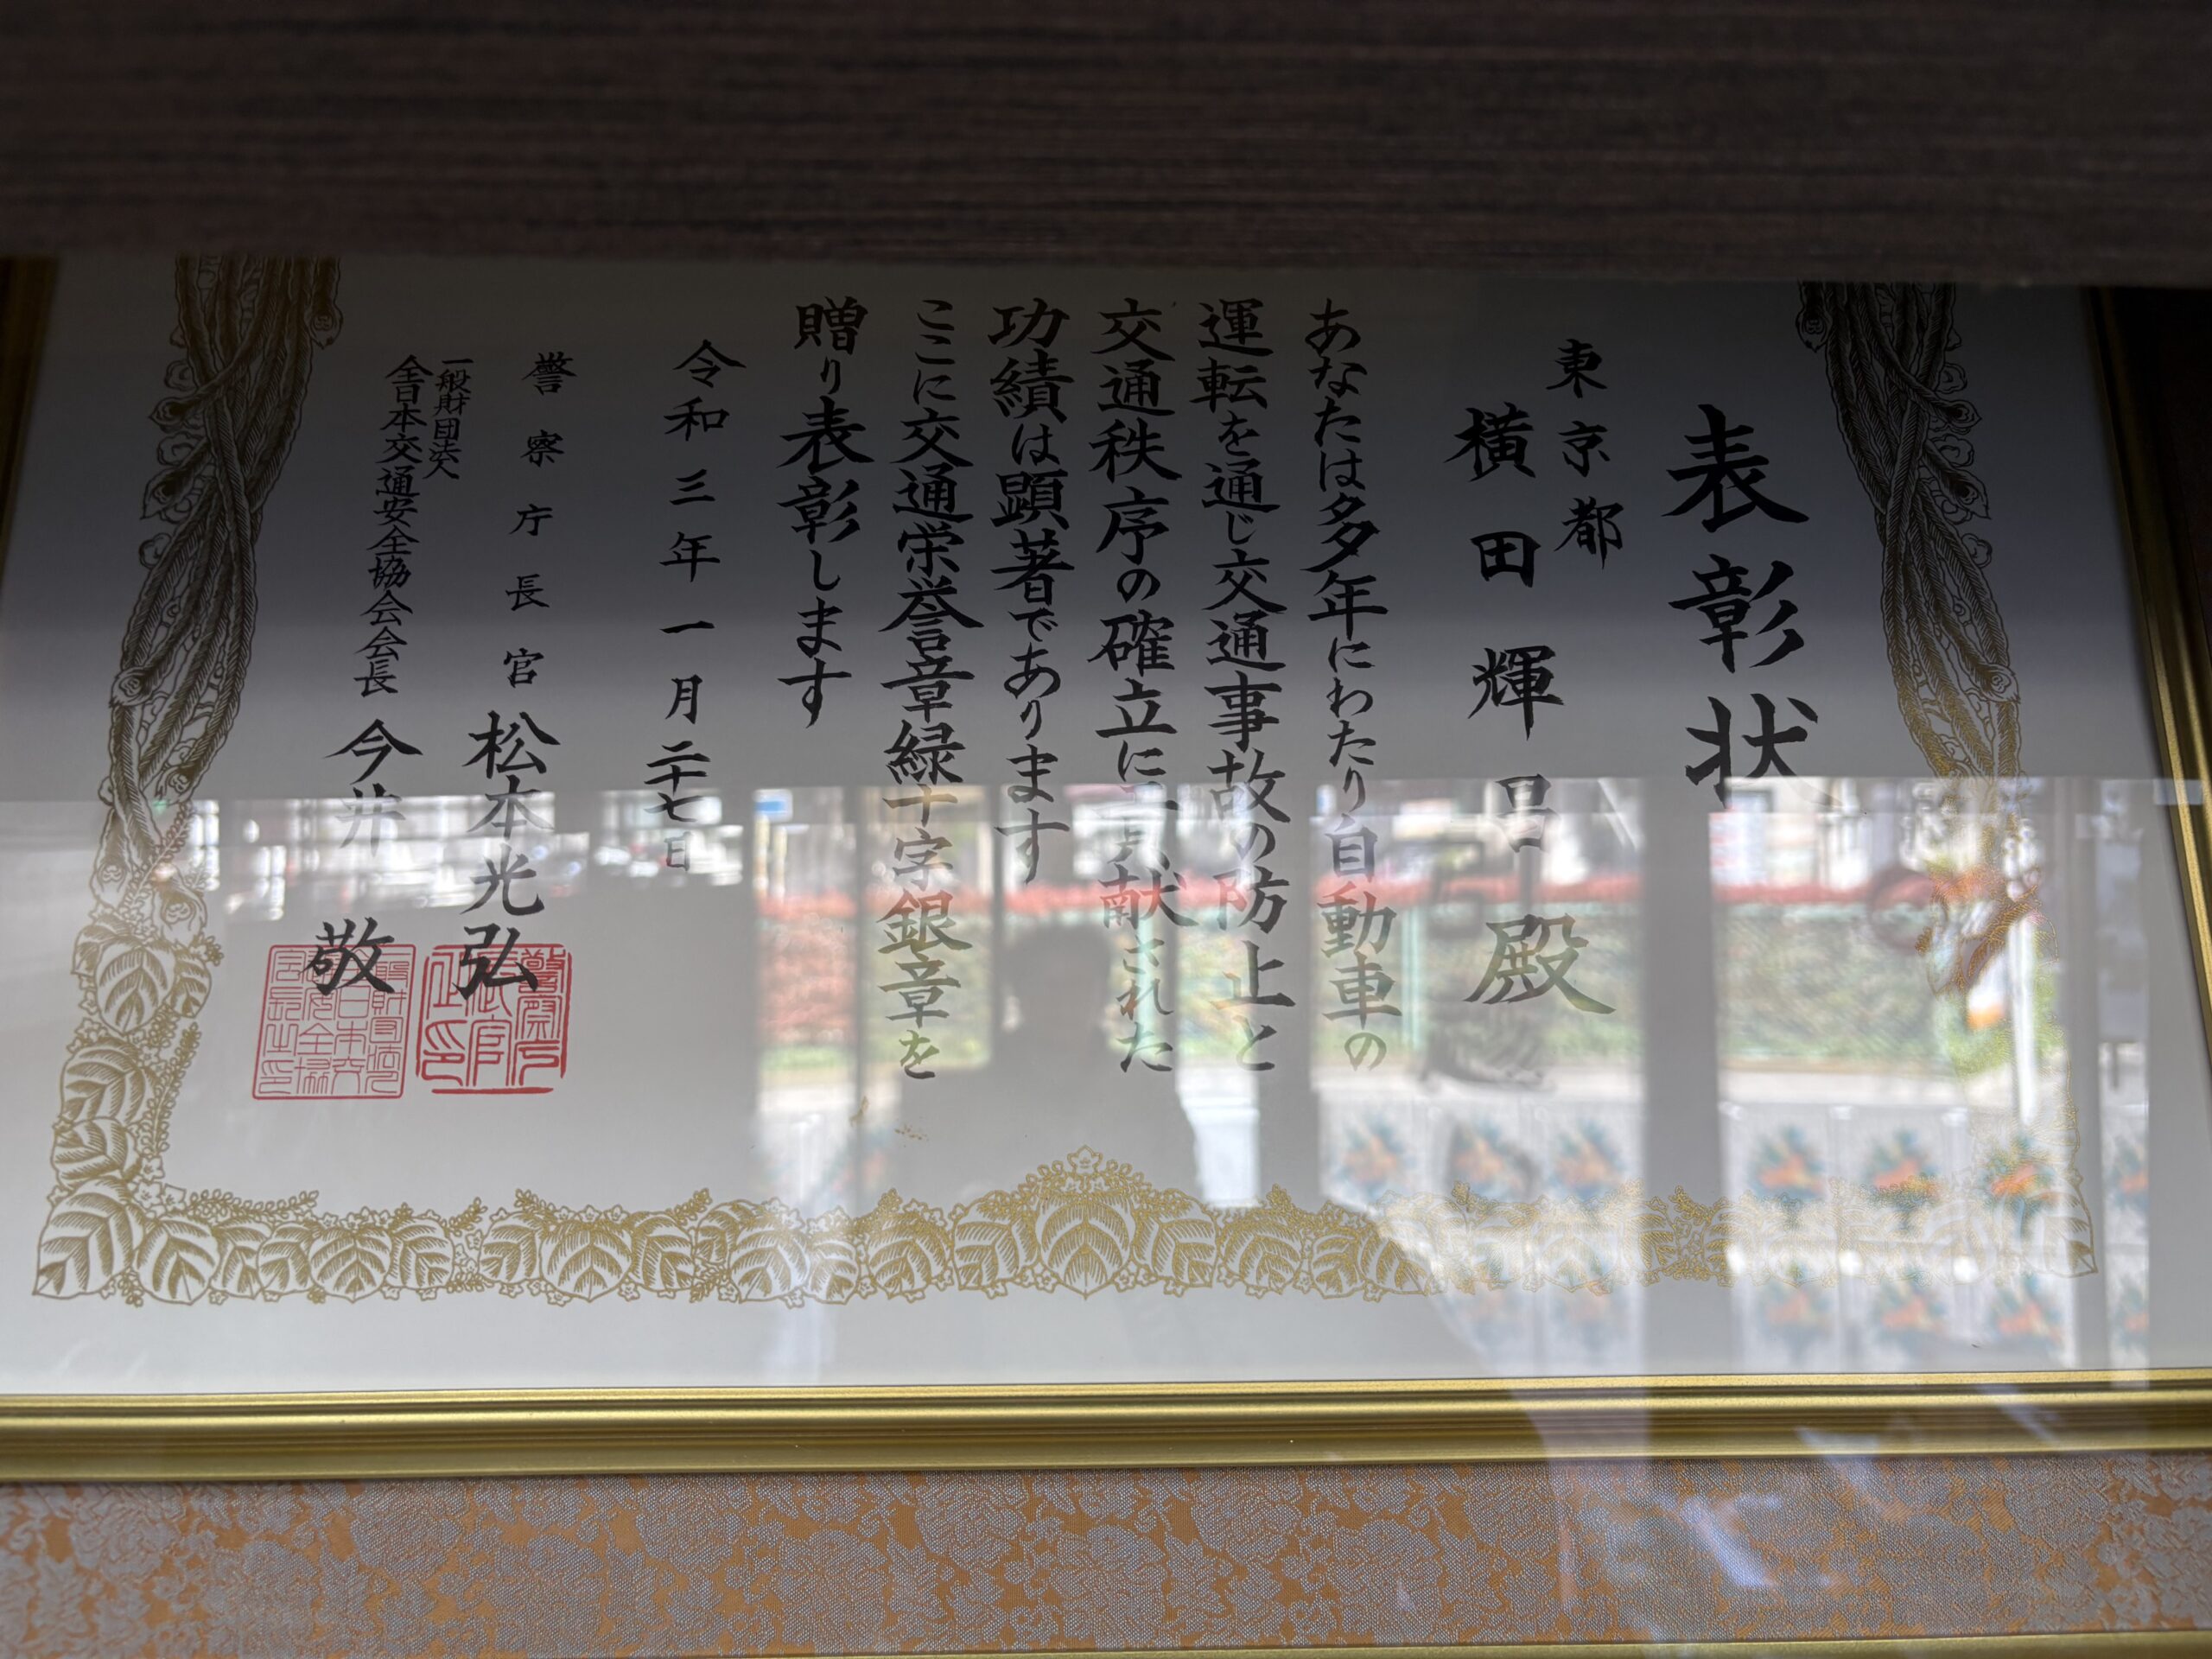 表彰状
東京都
横田輝呂殿
あなたは多年にわたり自動車の
運転を通じ交通事故の防止と
交通秩序の確立に貢献された
功績は顕著であります
ここに交通栄誉章緑十字銀章を
贈り表彰します
令和三年一月二十七日
警察庁長官 松本光弘
一般財団法人
全日本交通安全協会会長 今井 敬